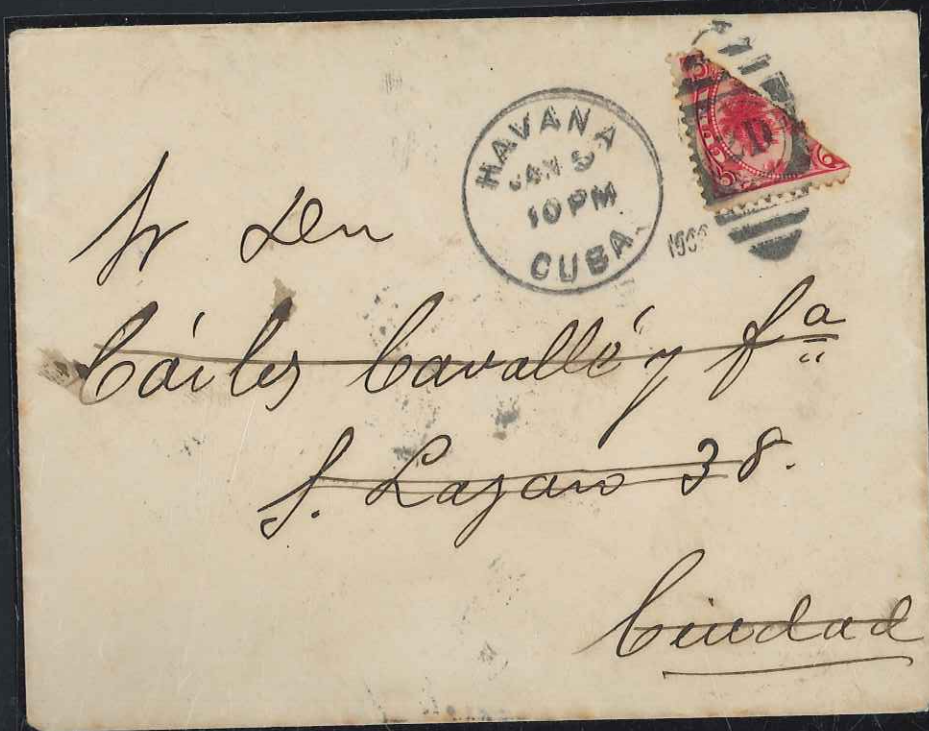 HAVANA
JAN 9
10 PM
CUBA.
Sr Don
Cárlos Cavalló y fª
S. Lazaro 38.
Ciudad